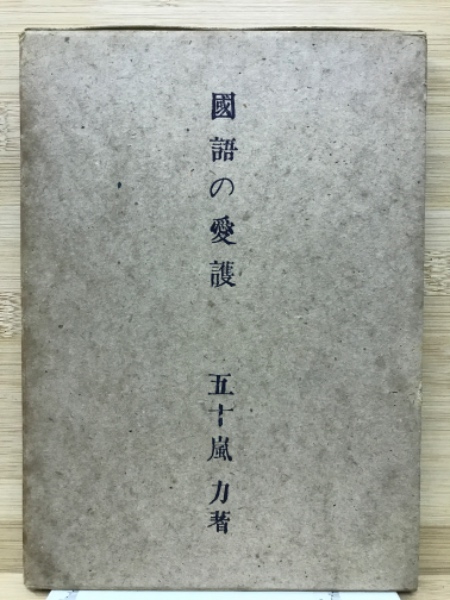 國語の愛護
五十嵐力著